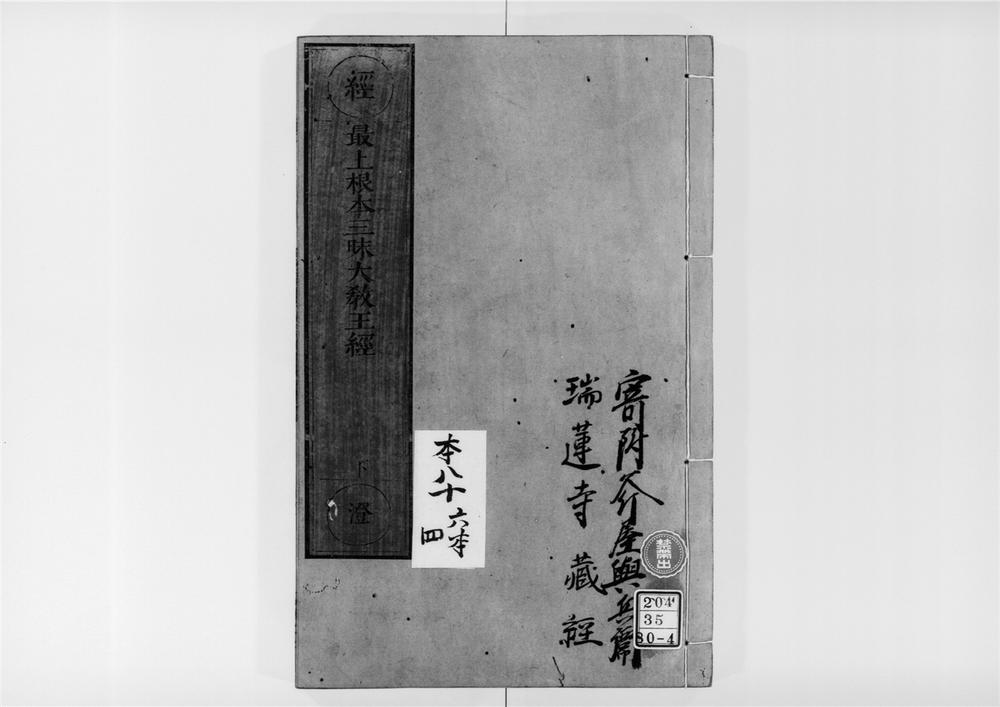 寄附介屋與兵衛
瑞蓮寺藏經
禁帶出
204
35
80-4
本八十六本
四
經
最上根本三昧大教王經
下
澄